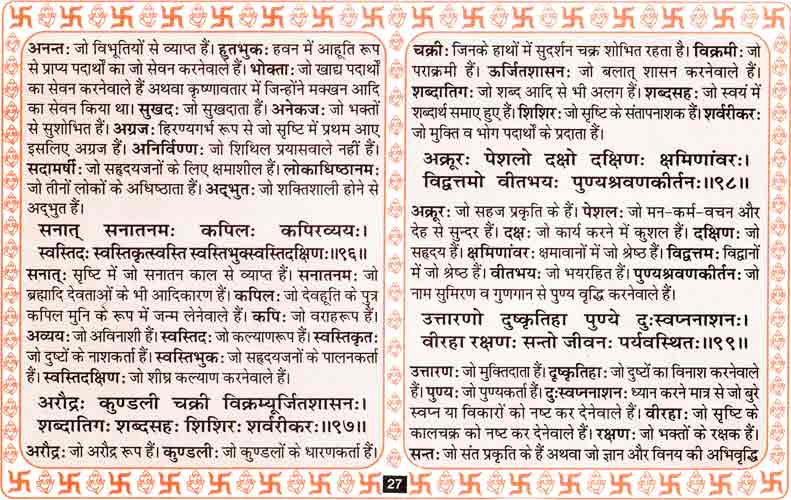 अनन्त: जो विभूतियों से व्याप्त हैं। हुतभुक: हवन में आहूति रूप
से प्राप्य पदार्थों का जो सेवन करनेवाले हैं। भोक्ता: जो खाद्य पदार्थों
का सेवन करनेवाले हैं अथवा कृष्णावतार में जिन्होंने मक्खन आदि
का सेवन किया था। सुखद: जो सुखदाता हैं। अनेकज: जो भक्तों
से सुशोभित हैं। अग्रज: हिरण्यगर्भ रूप से जो सृष्टि में प्रथम आए
इसलिए अग्रज हैं। अनिर्विण्ण: जो शिथिल प्रयासवाले नहीं हैं।
सदामर्षी: जो सहृदयजनों के लिए क्षमाशील हैं। लोकाधिष्ठानम:
जो तीनों लोकों के अधिष्ठाता हैं। अद्‌भुत: जो शक्तिशाली होने से
अद्‌भुत हैं।
सनात् सनातनमः कपिलः कपिरव्ययः।
स्वस्तिदः स्वस्तिकृत्स्वस्ति स्वस्तिभुक्स्वस्तिदक्षिणः॥९६॥
सनात्: सृष्टि में जो सनातन काल से व्याप्त हैं। सनातनम: जो
ब्रह्मादि देवताओं के भी आदिकारण हैं। कपिल: जो देवहूति के पुत्र
कपिल मुनि के रूप में जन्म लेनेवाले हैं। कपि: जो वराहरूप हैं।
अव्यय: जो अविनाशी हैं। स्वस्तिद: जो कल्याणरूप हैं। स्वस्तिकृत:
जो दुष्टों के नाशकर्ता हैं। स्वस्तिभुक: जो सहृदयजनों के पालनकर्ता
हैं। स्वस्तिदक्षिण: जो शीघ्र कल्याण करनेवाले हैं।
अरौद्रः कुण्डली चक्री विक्रम्यूर्जितशासनः।
शब्दातिगः शब्दसहः शिशिरः शर्वरीकरः॥९७॥
अरौद्र: जो अरौद्र रूप हैं। कुण्डली: जो कुण्डलों के धारणकर्ता हैं।
चक्री: जिनके हाथों में सुदर्शन चक्र शोभित रहता है। विक्रमी: जो
पराक्रमी हैं। ऊर्जितशासन: जो बलात् शासन करनेवाले हैं।
शब्दातिग: जो शब्द आदि से भी अलग हैं। शब्दसह: जो स्वयं में
शब्दार्थ समाए हुए हैं। शिशिर: जो सृष्टि के संतापनाशक हैं। शर्वरीकर:
जो मुक्ति व भोग पदार्थों के प्रदाता हैं।
अक्रूरः पेशलो दक्षो दक्षिणः क्षमिणांवरः।
विद्वत्तमो वीतभयः पुण्यश्रवणकीर्तनः॥९८॥
अक्रूर: जो सहज प्रकृति के हैं। पेशल: जो मन-कर्म-वचन और
देह से सुन्दर हैं। दक्ष: जो कार्य करने में कुशल हैं। दक्षिण: जो
सहृदय हैं। क्षमिणांवर: क्षमावानों में जो श्रेष्ठ हैं। विद्वत्तम: विद्वानों
में जो श्रेष्ठ हैं। वीतभय: जो भयरहित हैं। पुण्यश्रवणकीर्तन: जो
नाम सुमिरण व गुणगान से पुण्य वृद्धि करनेवाले हैं।
उत्तारणो दुष्कृतिहा पुण्ये दुःस्वप्ननाशनः।
वीरहा रक्षणः सन्तो जीवनः पर्यवस्थितः॥९९॥
उत्तारण: जो मुक्तिदाता हैं। दुष्कृतिहा: जो दुष्टों का विनाश करनेवाले
हैं। पुण्य: जो पुण्यकर्ता हैं। दुःस्वप्ननाशन: ध्यान करने मात्र से जो बुरे
स्वप्न या विकारों को नष्ट कर देनेवाले हैं। वीरहा: जो सृष्टि के
कालचक्र को नष्ट कर देनेवाले हैं। रक्षण: जो भक्तों के रक्षक हैं।
सन्त: जो संत प्रकृति के हैं अथवा जो ज्ञान और विनय की अभिवृद्धि
27